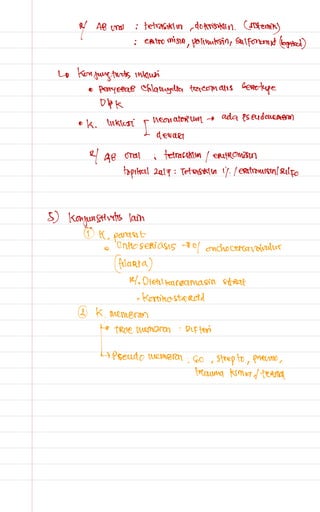 R/ AB oral : tetrasiklin, doksisiklin. (sistemik)
: eritromisin, polimiksin, sulfonamid (topikal)
↳ Konjungtivitis inklusi
• penyebab Chlamydia tracomatis serotype
D→K
• K. inklusi neonatorum → ada pseudomembran
dewasa
R/ AB oral : tetrasiklin / eritromisin
topikal zalf : Tetrasiklin 1% / eritromisin / sulfo
5) Konjungtivitis lain
① K. parasit
• Onkoserkiasis → o/ onchocerca volvulus
(filaria)
R/. Dietilkarbamasin sitrat
- Kortikosteroid
② K. membran
→ True membran : Difteri
→ Pseudo membran : GO, strepto, pneumo,
trauma kimia / termal